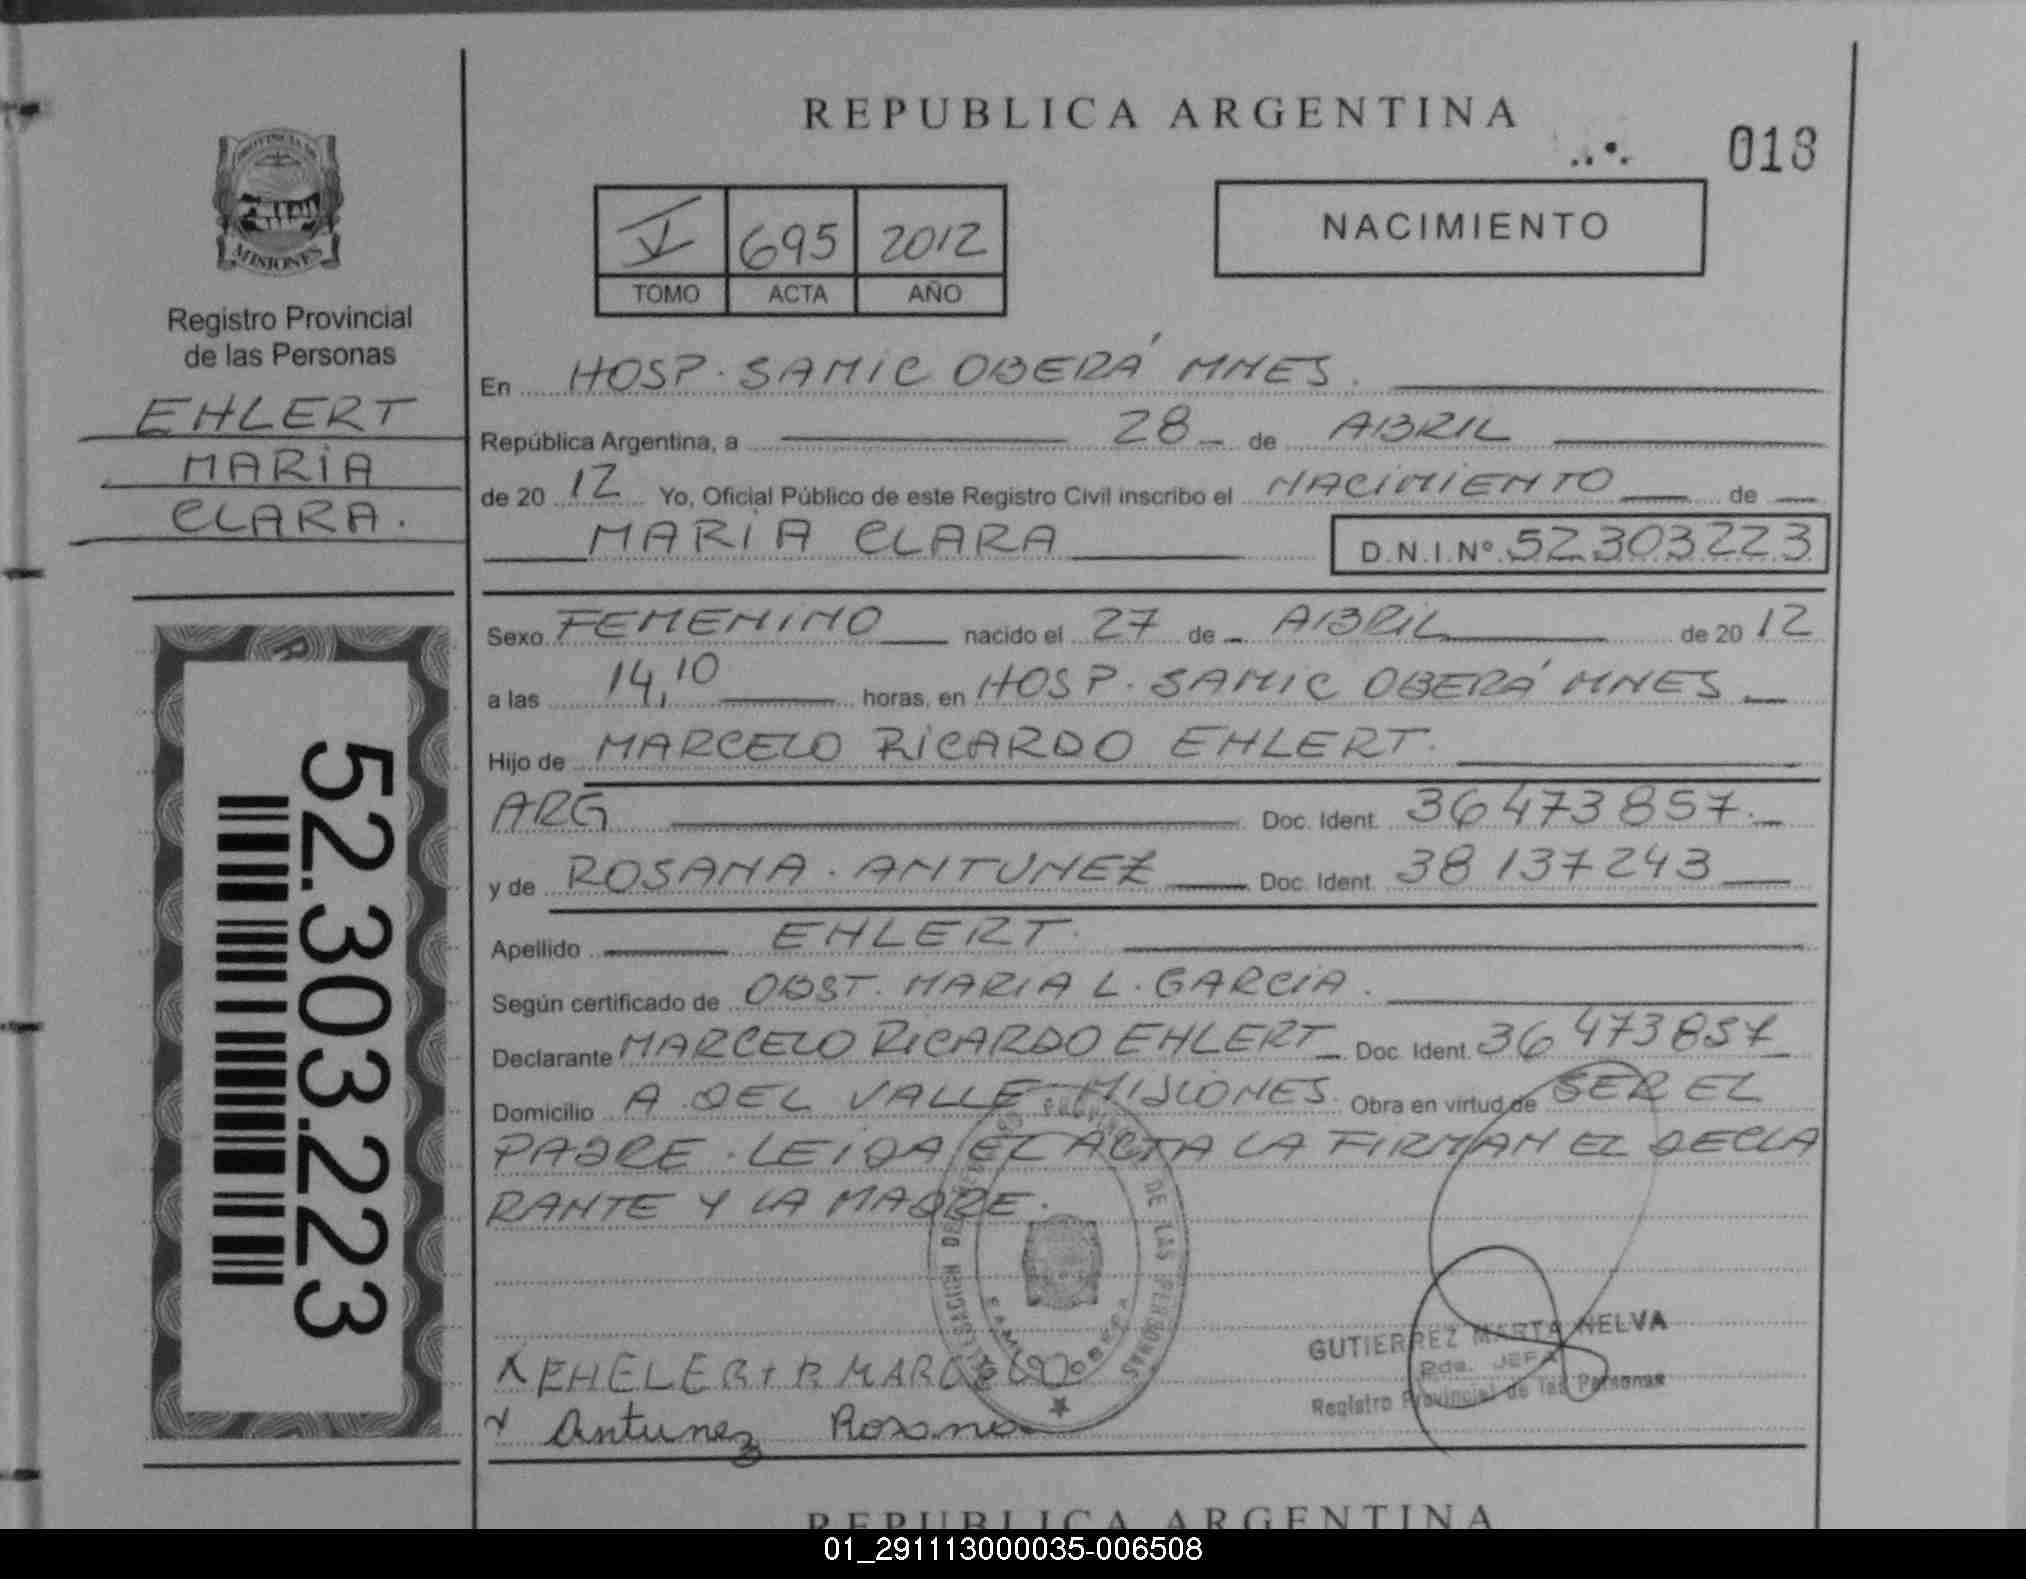 REPUBLICA ARGENTINA
018
PROVINCIA DE
MISIONES
Registro Provincial
de las Personas
EHLERT
MARIA
CLARA.
52.303.223
V 695 2012
TOMO ACTA AÑO
NACIMIENTO
En HOSP. SAMIC OBERÁ MNES.
República Argentina, a 28 de ABRIL
de 20 12 Yo, Oficial Público de este Registro Civil inscribo el NACIMIENTO de
MARIA CLARA D.N.I.Nº 52303223
Sexo FEMENINO nacido el 27 de ABRIL de 20 12
a las 14,10 horas, en HOSP. SAMIC OBERÁ MNES
Hijo de MARCELO RICARDO EHLERT.
ARG Doc. Ident. 36473857.
y de ROSANA. ANTUNEZ Doc. Ident. 38137243
Apellido EHLERT.
Según certificado de OBST. MARIA L. GARCIA.
Declarante MARCELO RICARDO EHLERT Doc. Ident. 36473857
Domicilio A. DEL VALLE MISIONES. Obra en virtud de SER EL
PADRE. LEIDA EL ACTA LA FIRMAN EL DECLA
RANTE Y LA MADRE.
DE LAS PERSONAS
SAMIC OBERA
GUTIERREZ MARTA NELVA
Pda. JEFA
Registro Provincial de las Personas
X EHELERT R MARCELO
Antunez Rosana
REPUBLICA ARGENTINA
01_291113000035-006508